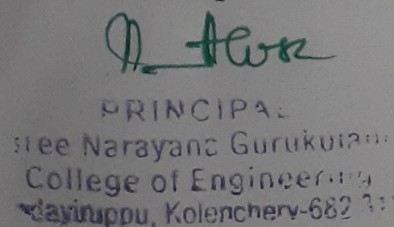 PRINCIPAL
sree Narayana Gurukulam
College of Engineering
Kadayiruppu, Kolenchery-682 31